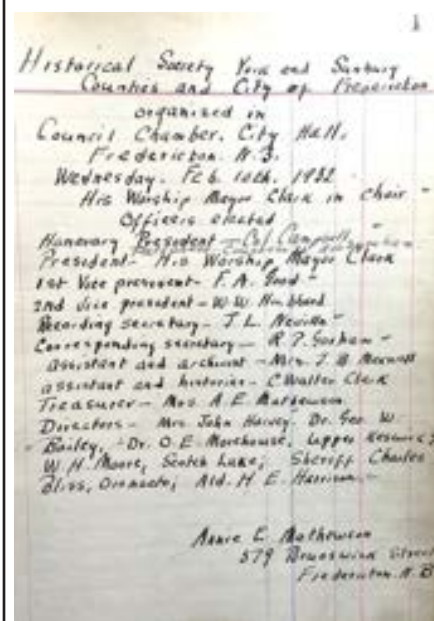 1
Historical Society York and Sunbury
Counties and City of Fredericton
organized in
Council Chamber, City Hall,
Fredericton N.B.
Wednesday. Feb. 10th. 1932
His Worship Mayor Clark in chair -
Officers elected
Honorary President - Col Campbell
President - His Worship Mayor Clark
1st Vice president - F. A. Good -
2nd vice president - W. W. Hubbard
Recording secretary - J. L. Neville -
Corresponding secretary - R. P. Gorham -
assistant and archivist - Mrs. J. B. Maxwell
assistant and historian - C. Walter Clark
Treasurer - Mrs. A. E. Mathewson
Directors - Mrs John Harvey, Dr. Geo. W.
Bailey, - Dr. O. E. Morehouse, Upper Keswick;
W. H. Moore, Scotch Lake; Sheriff Charles
Bliss, Oromocto; Ald. H. E. Harrison -
Annie E. Mathewson
579 Brunswick Street
Fredericton. N.B